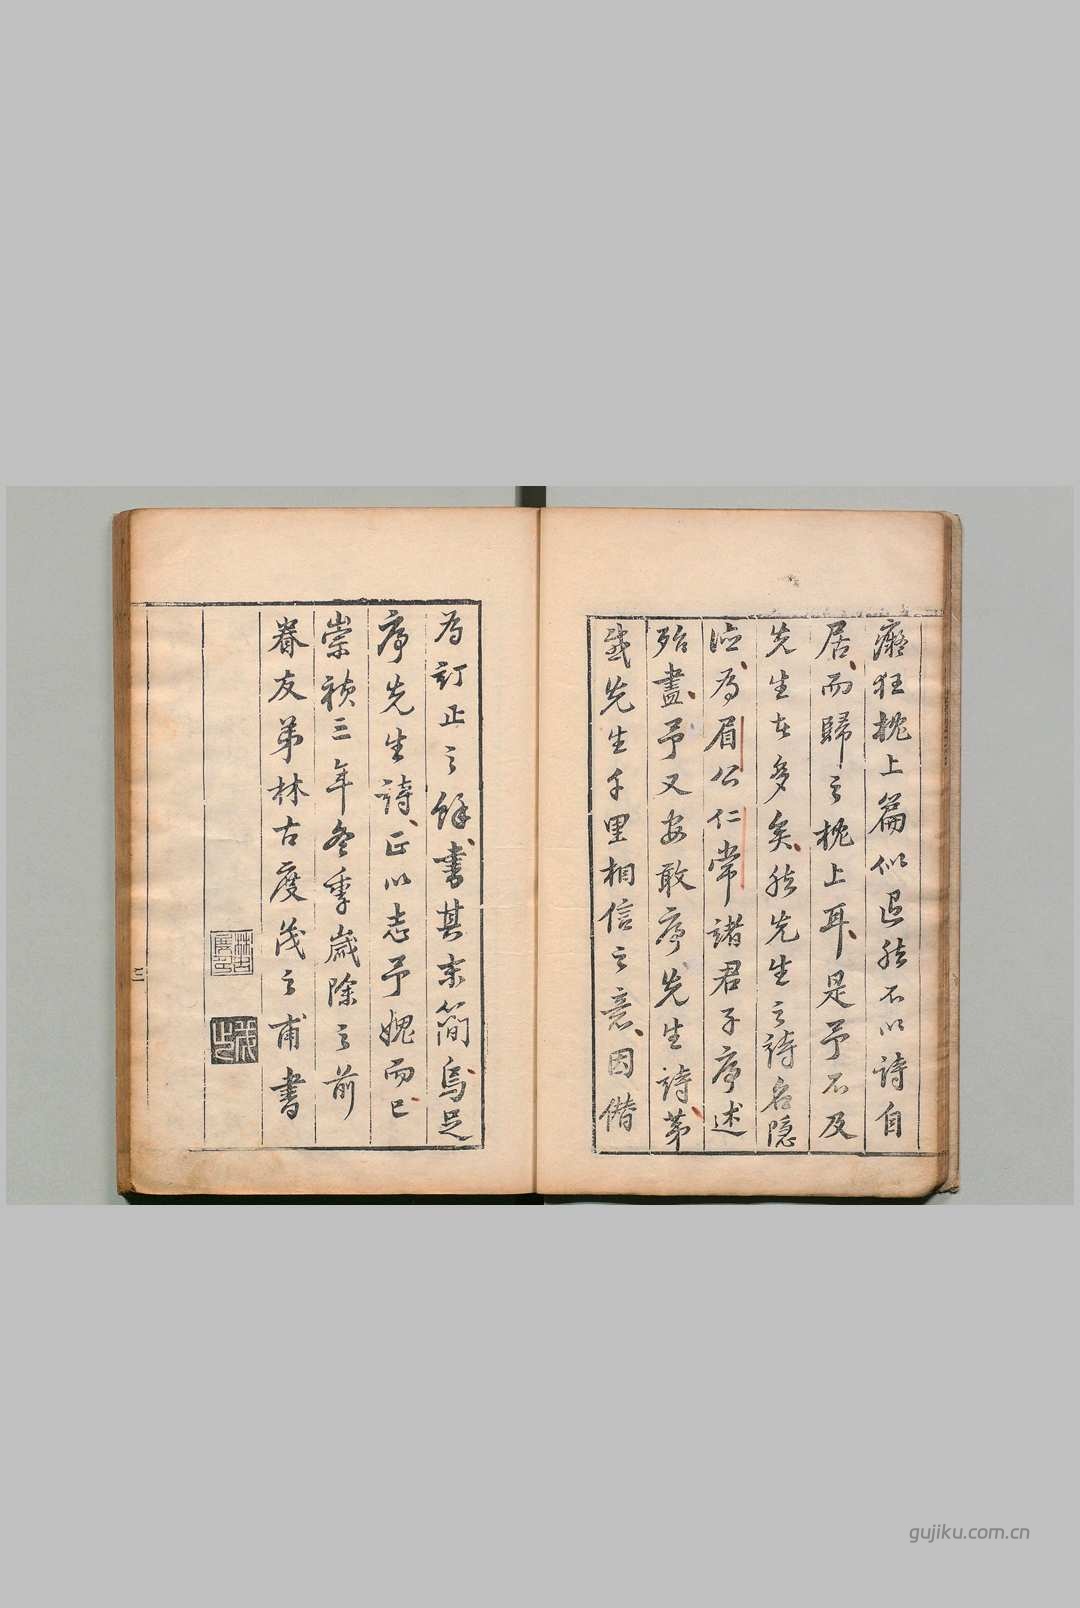 癡狂枕上篇似逞然不以詩自
居而歸之枕上耳是予不及
先生在多矣然先生之詩名隱
德為眉公仁常諸君子序述
殆盡予又安敢序先生詩第
感先生千里相信之意因僭
為訂正之餘書其末簡烏足
序先生詩正以志予媿而已
崇禎三年冬季歲除之前
眷友弟林古度茂之甫書
林古度印
茂之
三
gujiku.com.cn